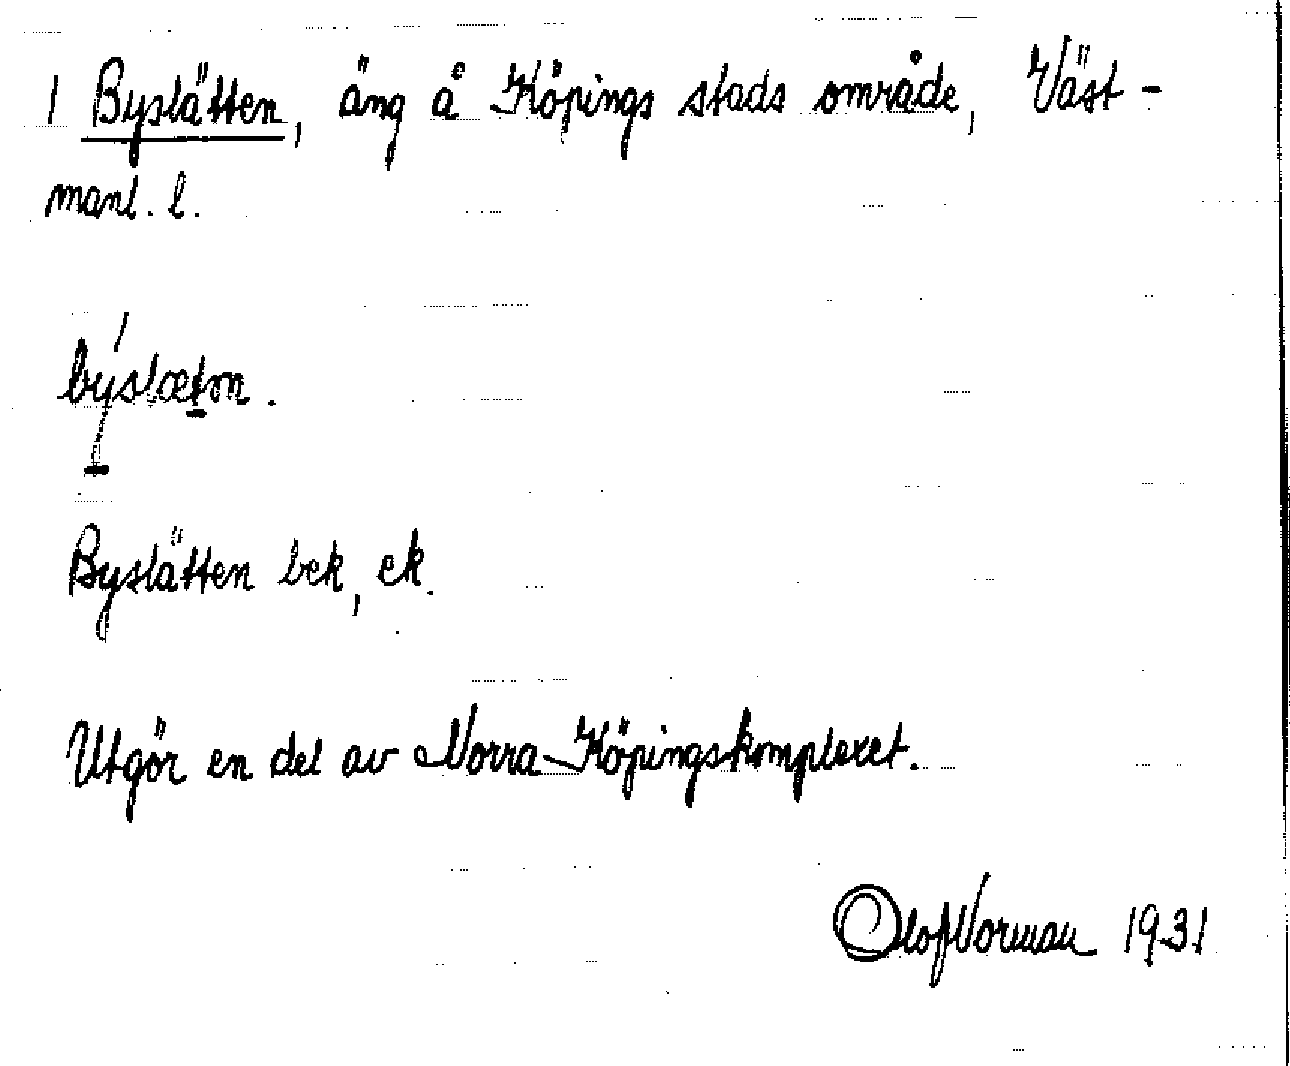 1 Byslätten, äng å Köpings stads område, Väst-
manl. l.
býslætn.
Byslätten bek, ek.
Utgör en del av Norra Köpingskomplexet.
Olof Norman 1931